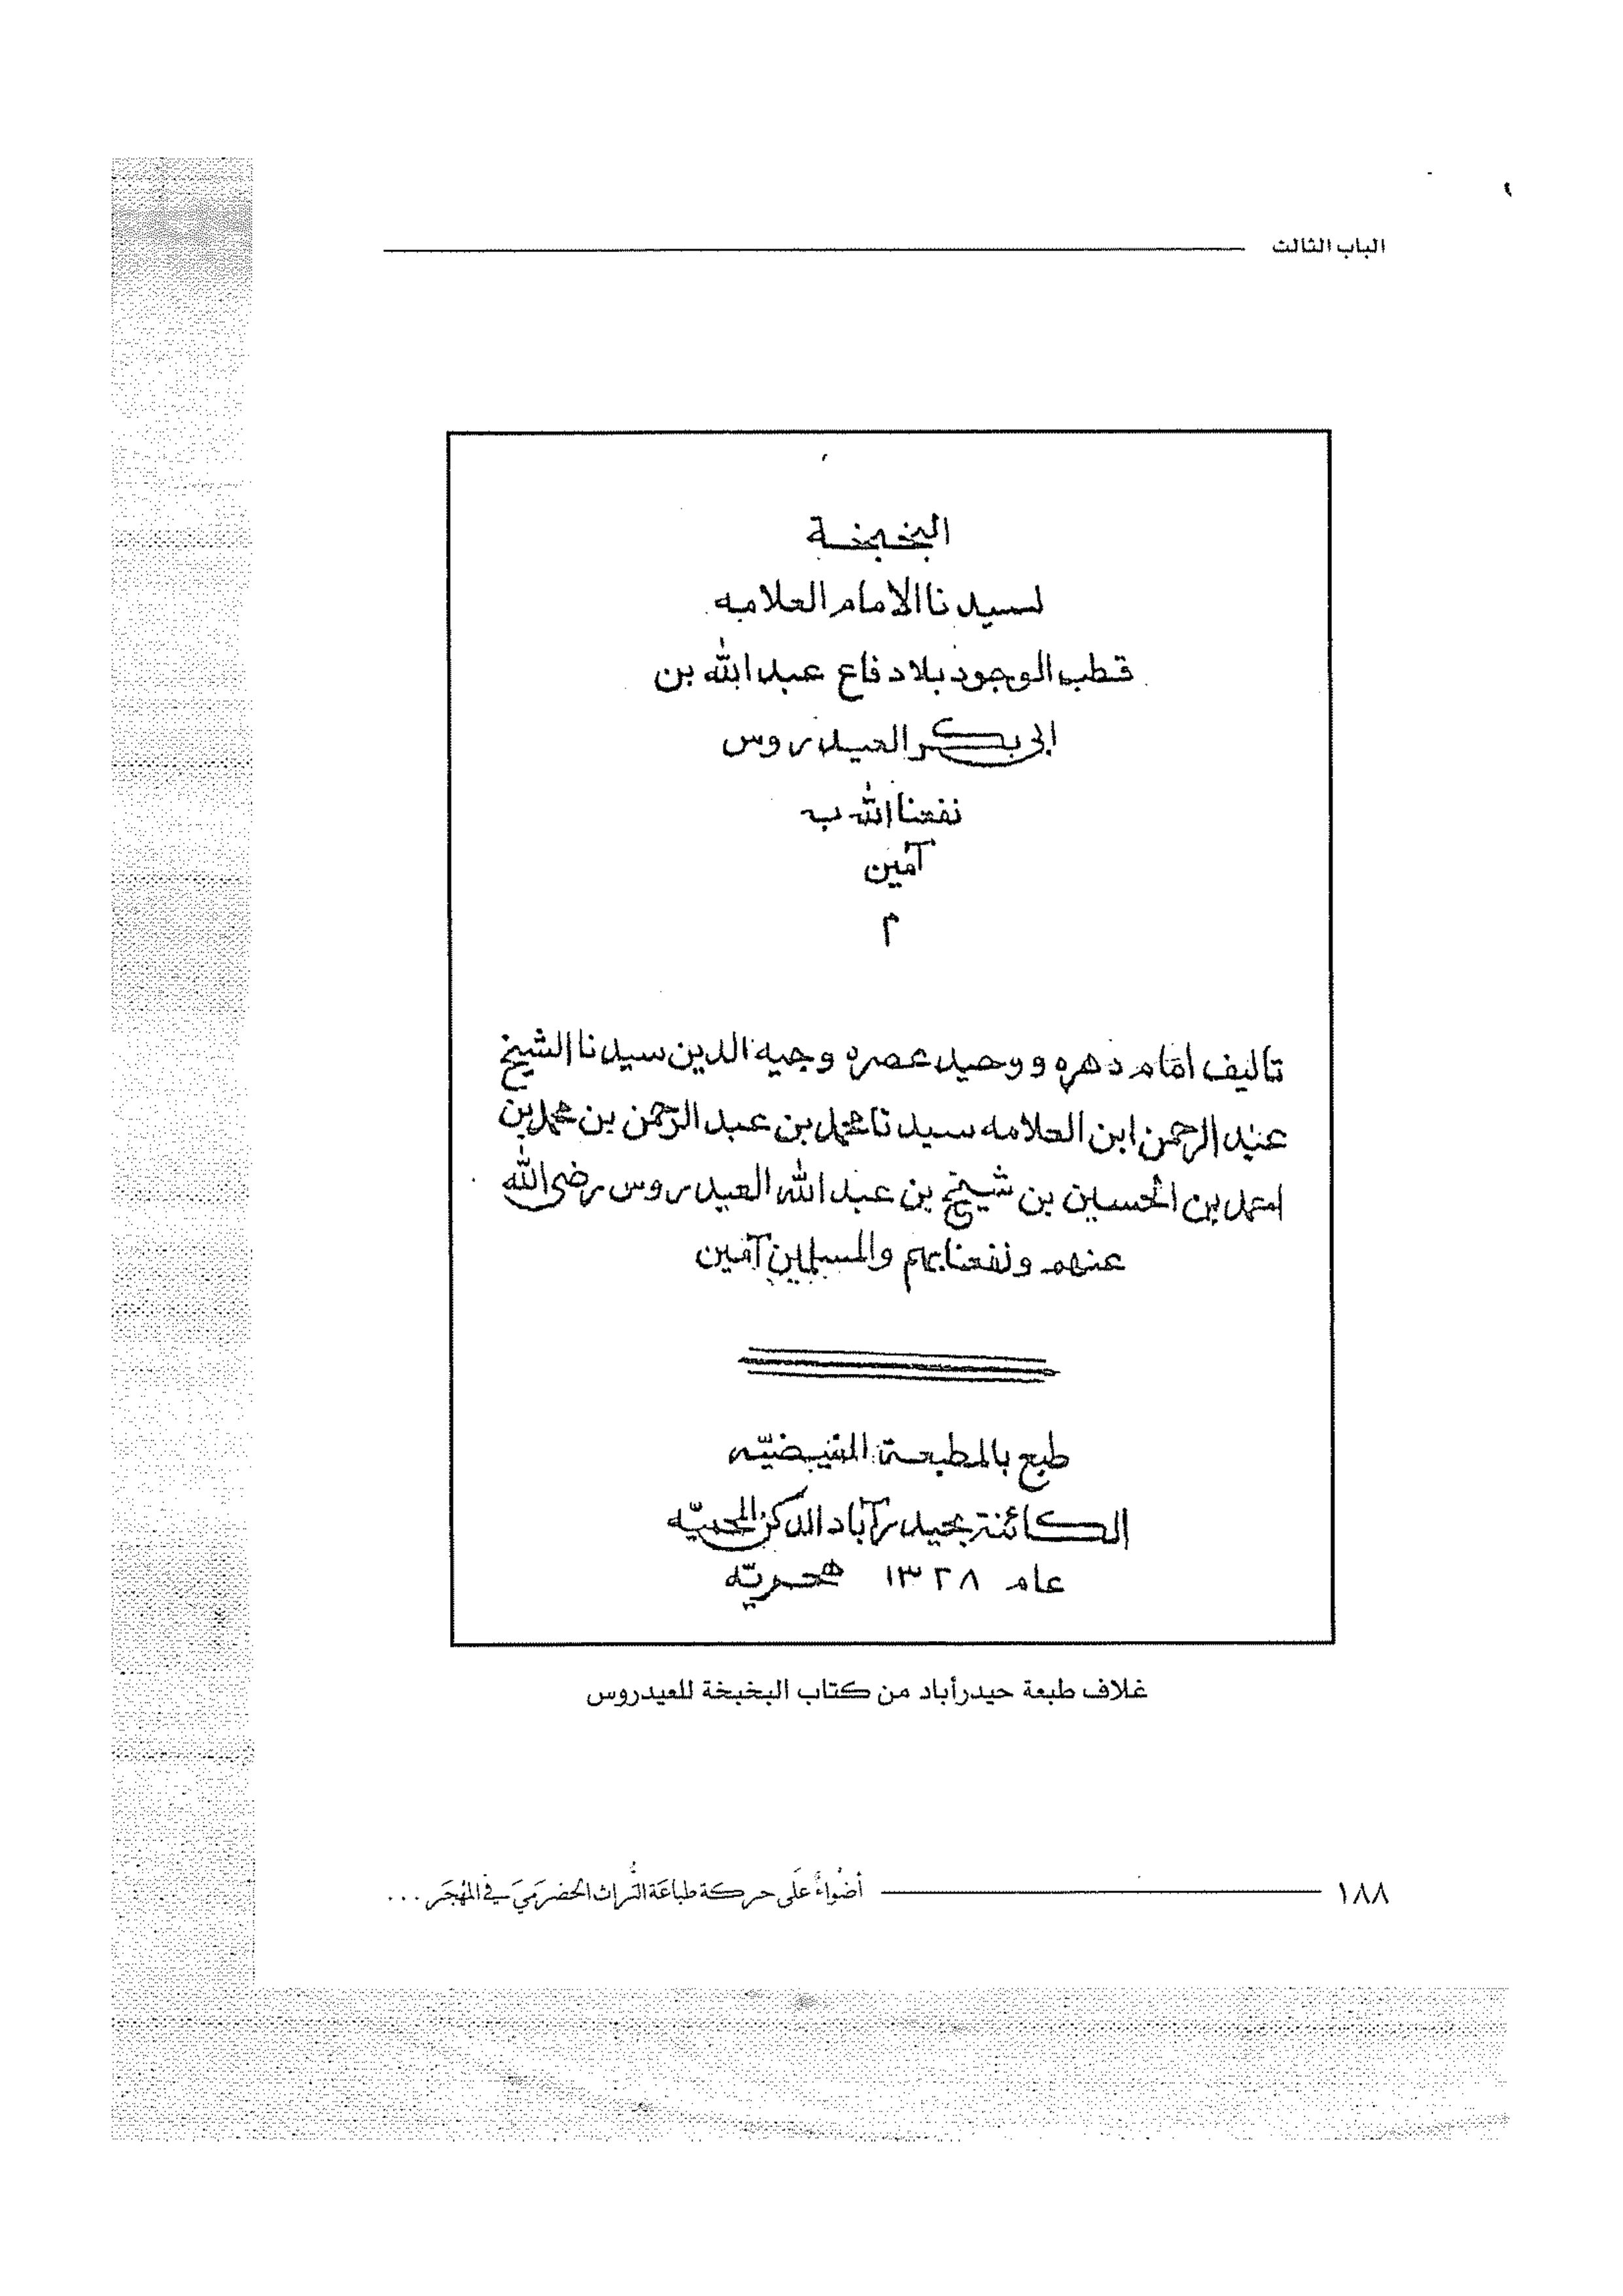 الباب الثالث
البخبخة
لسيدنا الامام العلامه
قطب الوجود بلا دفاع عبد الله بن
ابى بكر العيدروس
نفعنا الله به
آمين
٢
تاليف امام دهره ووحيد عصره وجيه الدين سيدنا الشيخ
عبد الرحمن ابن العلامه سيدنا محمد بن عبد الرحمن بن محمد بن
احمد بن الحسين بن شيخ بن عبد الله العيدروس رضى الله
عنهم ونفعنا بهم والمسلمين آمين
طبع بالمطبعة الفيضيّه
الكائنة بحيدرآباد الدكن المحميّه
عام ١٣٢٨ هجريّه
غلاف طبعة حيدرأباد من كتاب البخبخة للعيدروس
١٨٨ أضواءٌ على حركة طباعة التُّراث الحضرَميّ في المَهْجَر ...